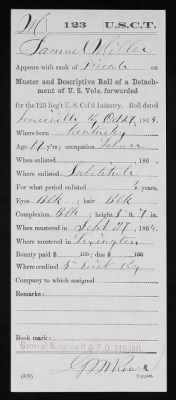 W | 123 | U.S.C.T.
Samuel Miller
Appears with rank of Private on
Muster and Descriptive Roll of a Detach-
ment of U. S. Vols. forwarded
for the 123 Reg't U. S. Col'd Infantry. Roll dated
Louisville Ky Oct 21, 1864.
Where born Kentucky
Age y'rs; occupation Laborer
When enlisted , 186 .
Where enlisted Substitute
For what period enlisted 3 years.
Eyes Blk ; hair Blk
Complexion Blk ; height 5 ft. 7 in.
When mustered in Sept 27, 1864.
Where mustered in Lexington
Bounty paid $ 100; due $ 100
Where credited 5 Dist Ky
Company to which assigned
Remarks:
Book mark:
General Notation R & P O
(339) Copyist.